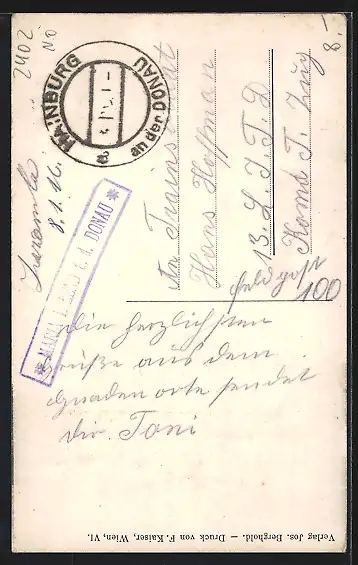 2402
NÖ
8.-
HAINBURG
an der DONAU
a
8.1.16.
* MARIA ELLEND a. d. DONAU *
An Trainsoldat
Hans Hoffman
13. L. I. T. D
Komd T. Zug
Feldpost
100
Die herzlichsten
Grüße aus dem
Gnadenorte sendet
dir Toni
Verlag Jos. Berghold. — Druck von F. Kaiser, Wien, VI.